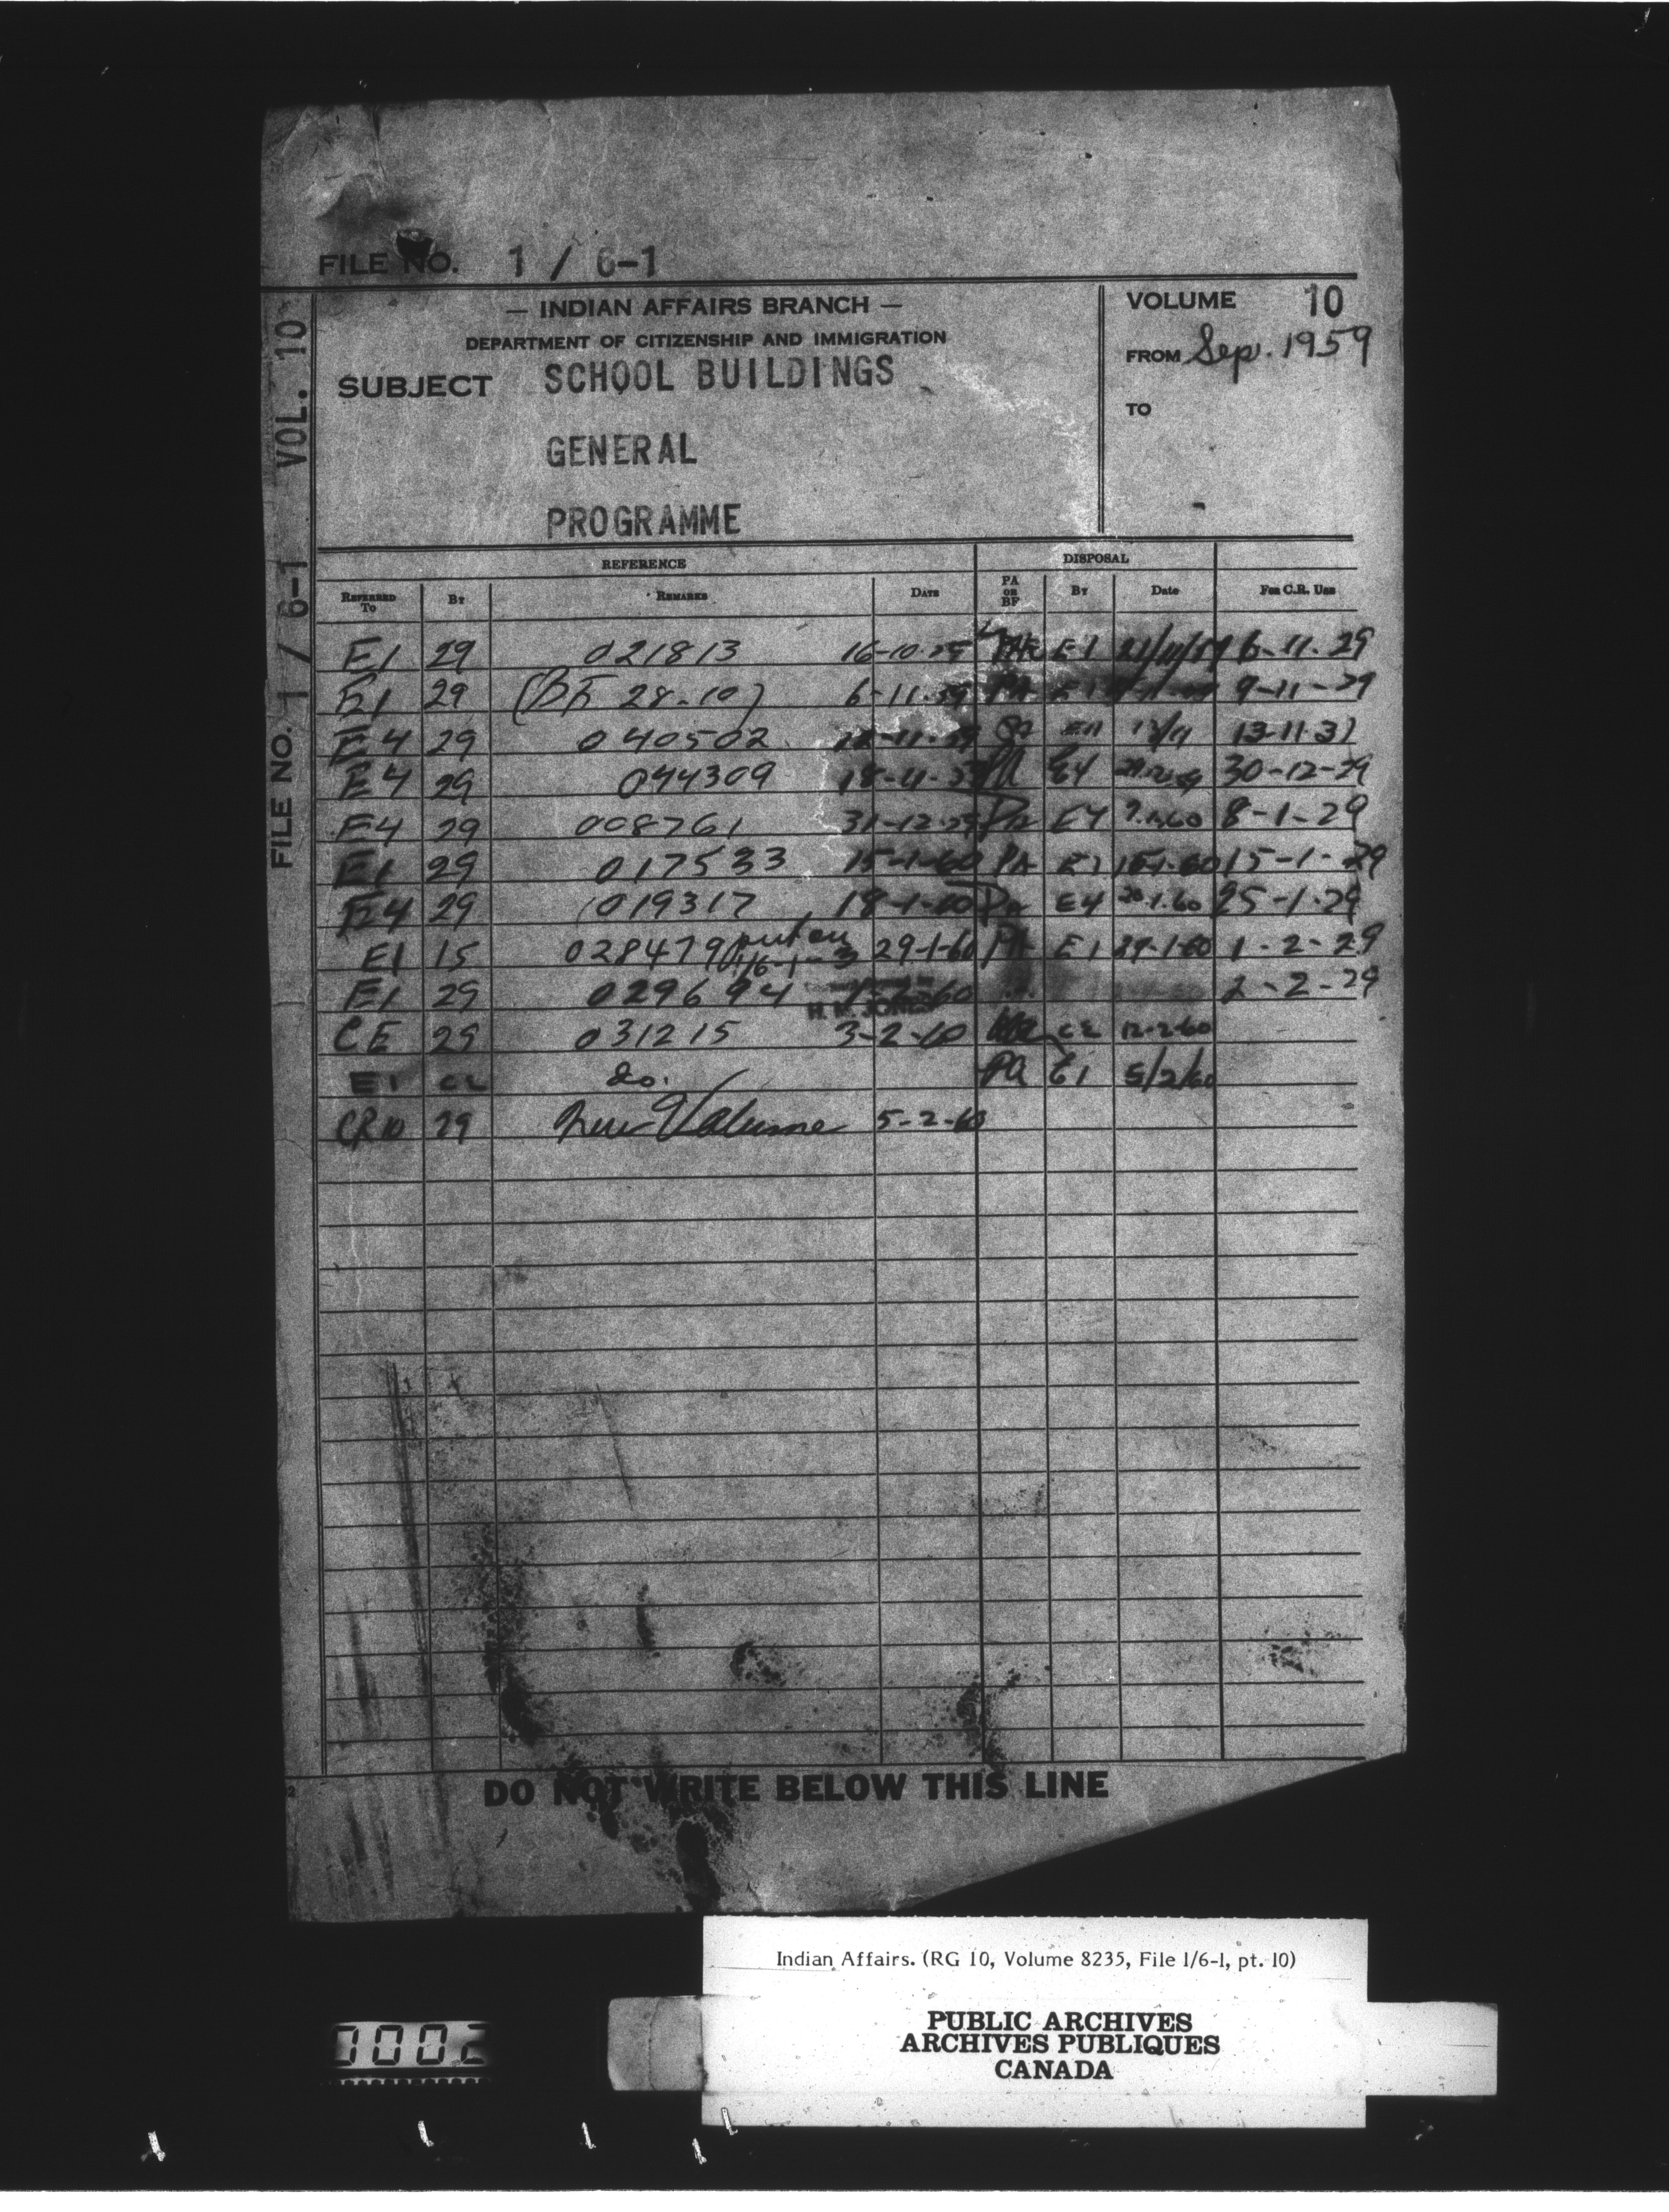 FILE NO. 1 / 6-1
VOL. 10
FILE NO. 1 / 6-1
— INDIAN AFFAIRS BRANCH —
DEPARTMENT OF CITIZENSHIP AND IMMIGRATION
SUBJECT SCHOOL BUILDINGS
GENERAL
PROGRAMME
VOLUME 10
FROM Sep. 1959
TO
REFERENCE DISPOSAL
REFERRED TO BY REMARKS DATE PA OR BF BY Date FOR C.R. USE
E1 29 021813 16-10-59 E1 6-11-29
E1 29 (BF 28-10) 6-11-59 PA 9-11-29
E4 29 040502 13-11-31
E4 29 044309 18-11-59 PA E4 30-12-29
E4 29 008761 31-12-59 PA E4 8-1-29
E1 29 017533 15-1-60 PA E1 15-1-60 15-1-29
E4 29 019317 19-1-60 PA E4 20.1.60 25-1-29
E1 15 028479 put on 1/6-1-3 29-1-60 PA E1 29-1-60 1-2-29
E1 29 029694 H. M. JONES 2-2-29
CE 29 031215 3-2-60 CE 12-2-60
E1 CE do. PA E1 5/2/60
CR10 29 New Volume 5-2-60
DO NOT WRITE BELOW THIS LINE
Indian Affairs. (RG 10, Volume 8235, File 1/6-1, pt. 10)
PUBLIC ARCHIVES
ARCHIVES PUBLIQUES
CANADA
0002